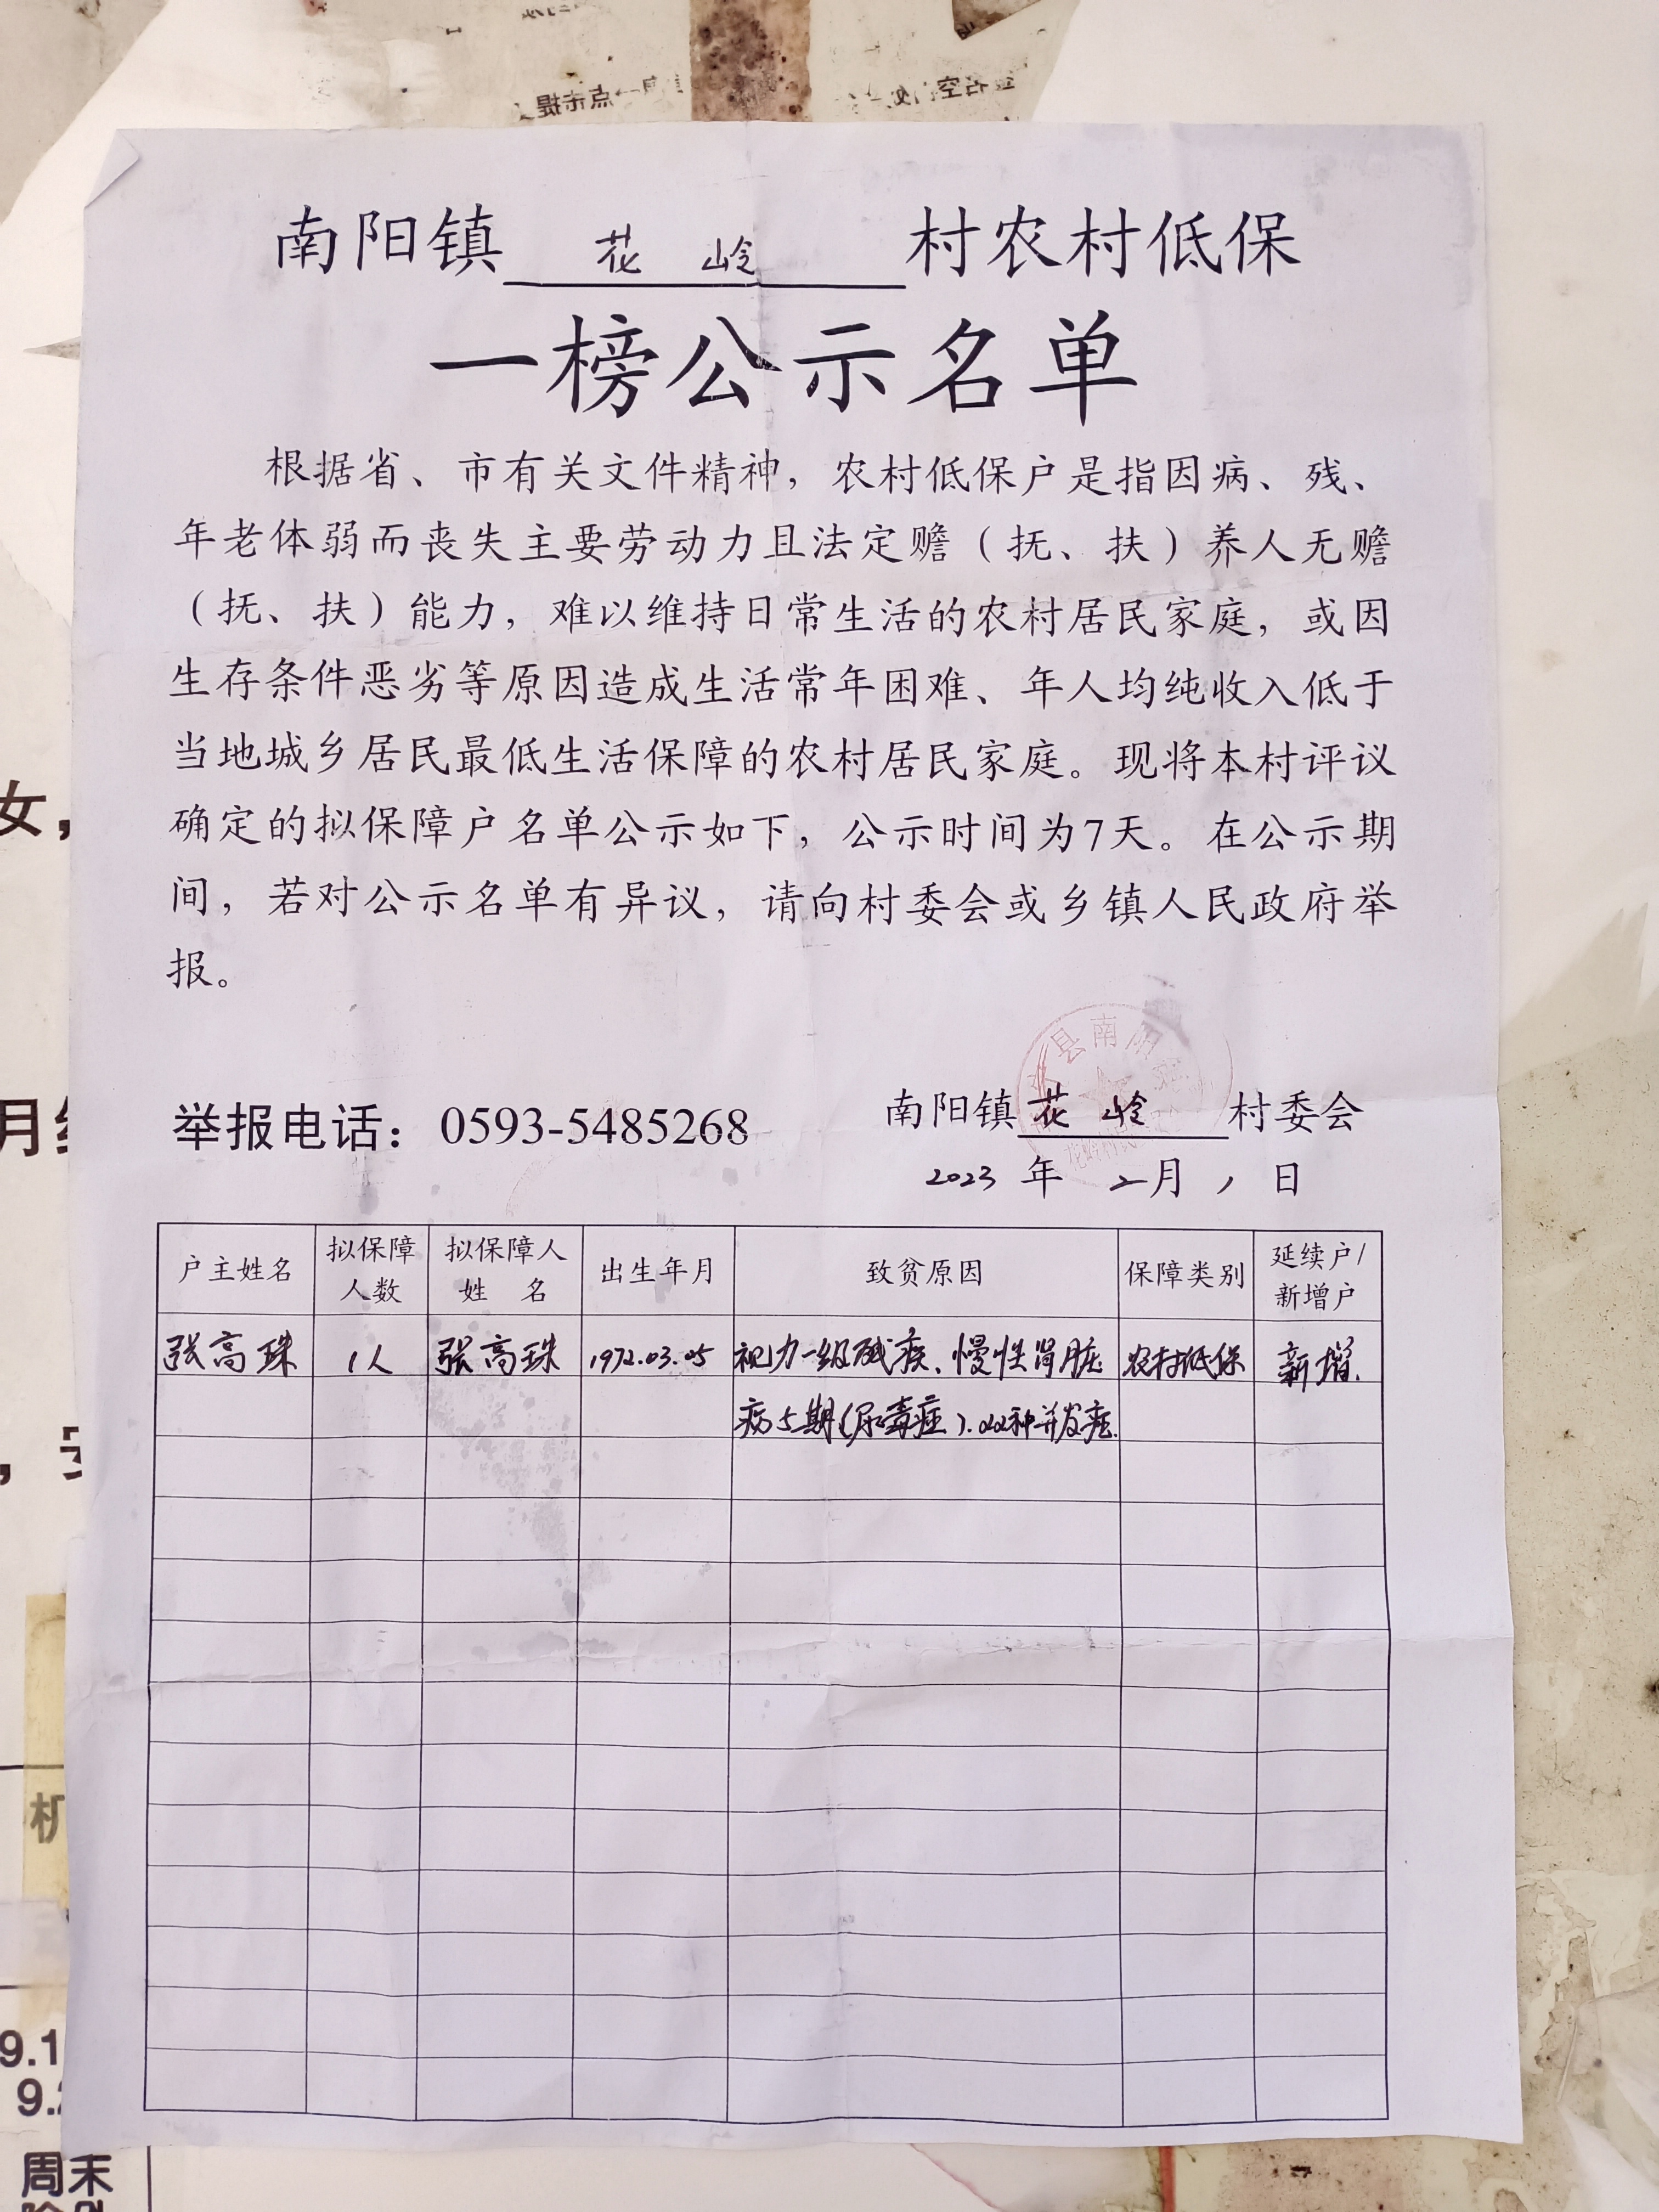 南阳镇 花岭 村农村低保
一榜公示名单
根据省、市有关文件精神，农村低保户是指因病、残、
年老体弱而丧失主要劳动力且法定赡（抚、扶）养人无赡
（抚、扶）能力，难以维持日常生活的农村居民家庭，或因
生存条件恶劣等原因造成生活常年困难、年人均纯收入低于
当地城乡居民最低生活保障的农村居民家庭。现将本村评议
确定的拟保障户名单公示如下，公示时间为7天。在公示期
间，若对公示名单有异议，请向村委会或乡镇人民政府举
报。
举报电话：0593-5485268
南阳镇 花岭 村委会
2023 年 2月 1 日
户主姓名 拟保障人数 拟保障人姓名 出生年月 致贫原因 保障类别 延续户/新增户
张高珠 1人 张高珠 1972.03.05 视力一级残疾、慢性肾脏 农村低保 新增.
病5期(尿毒症).种并发症.
女，
月
9.1
9.
周末